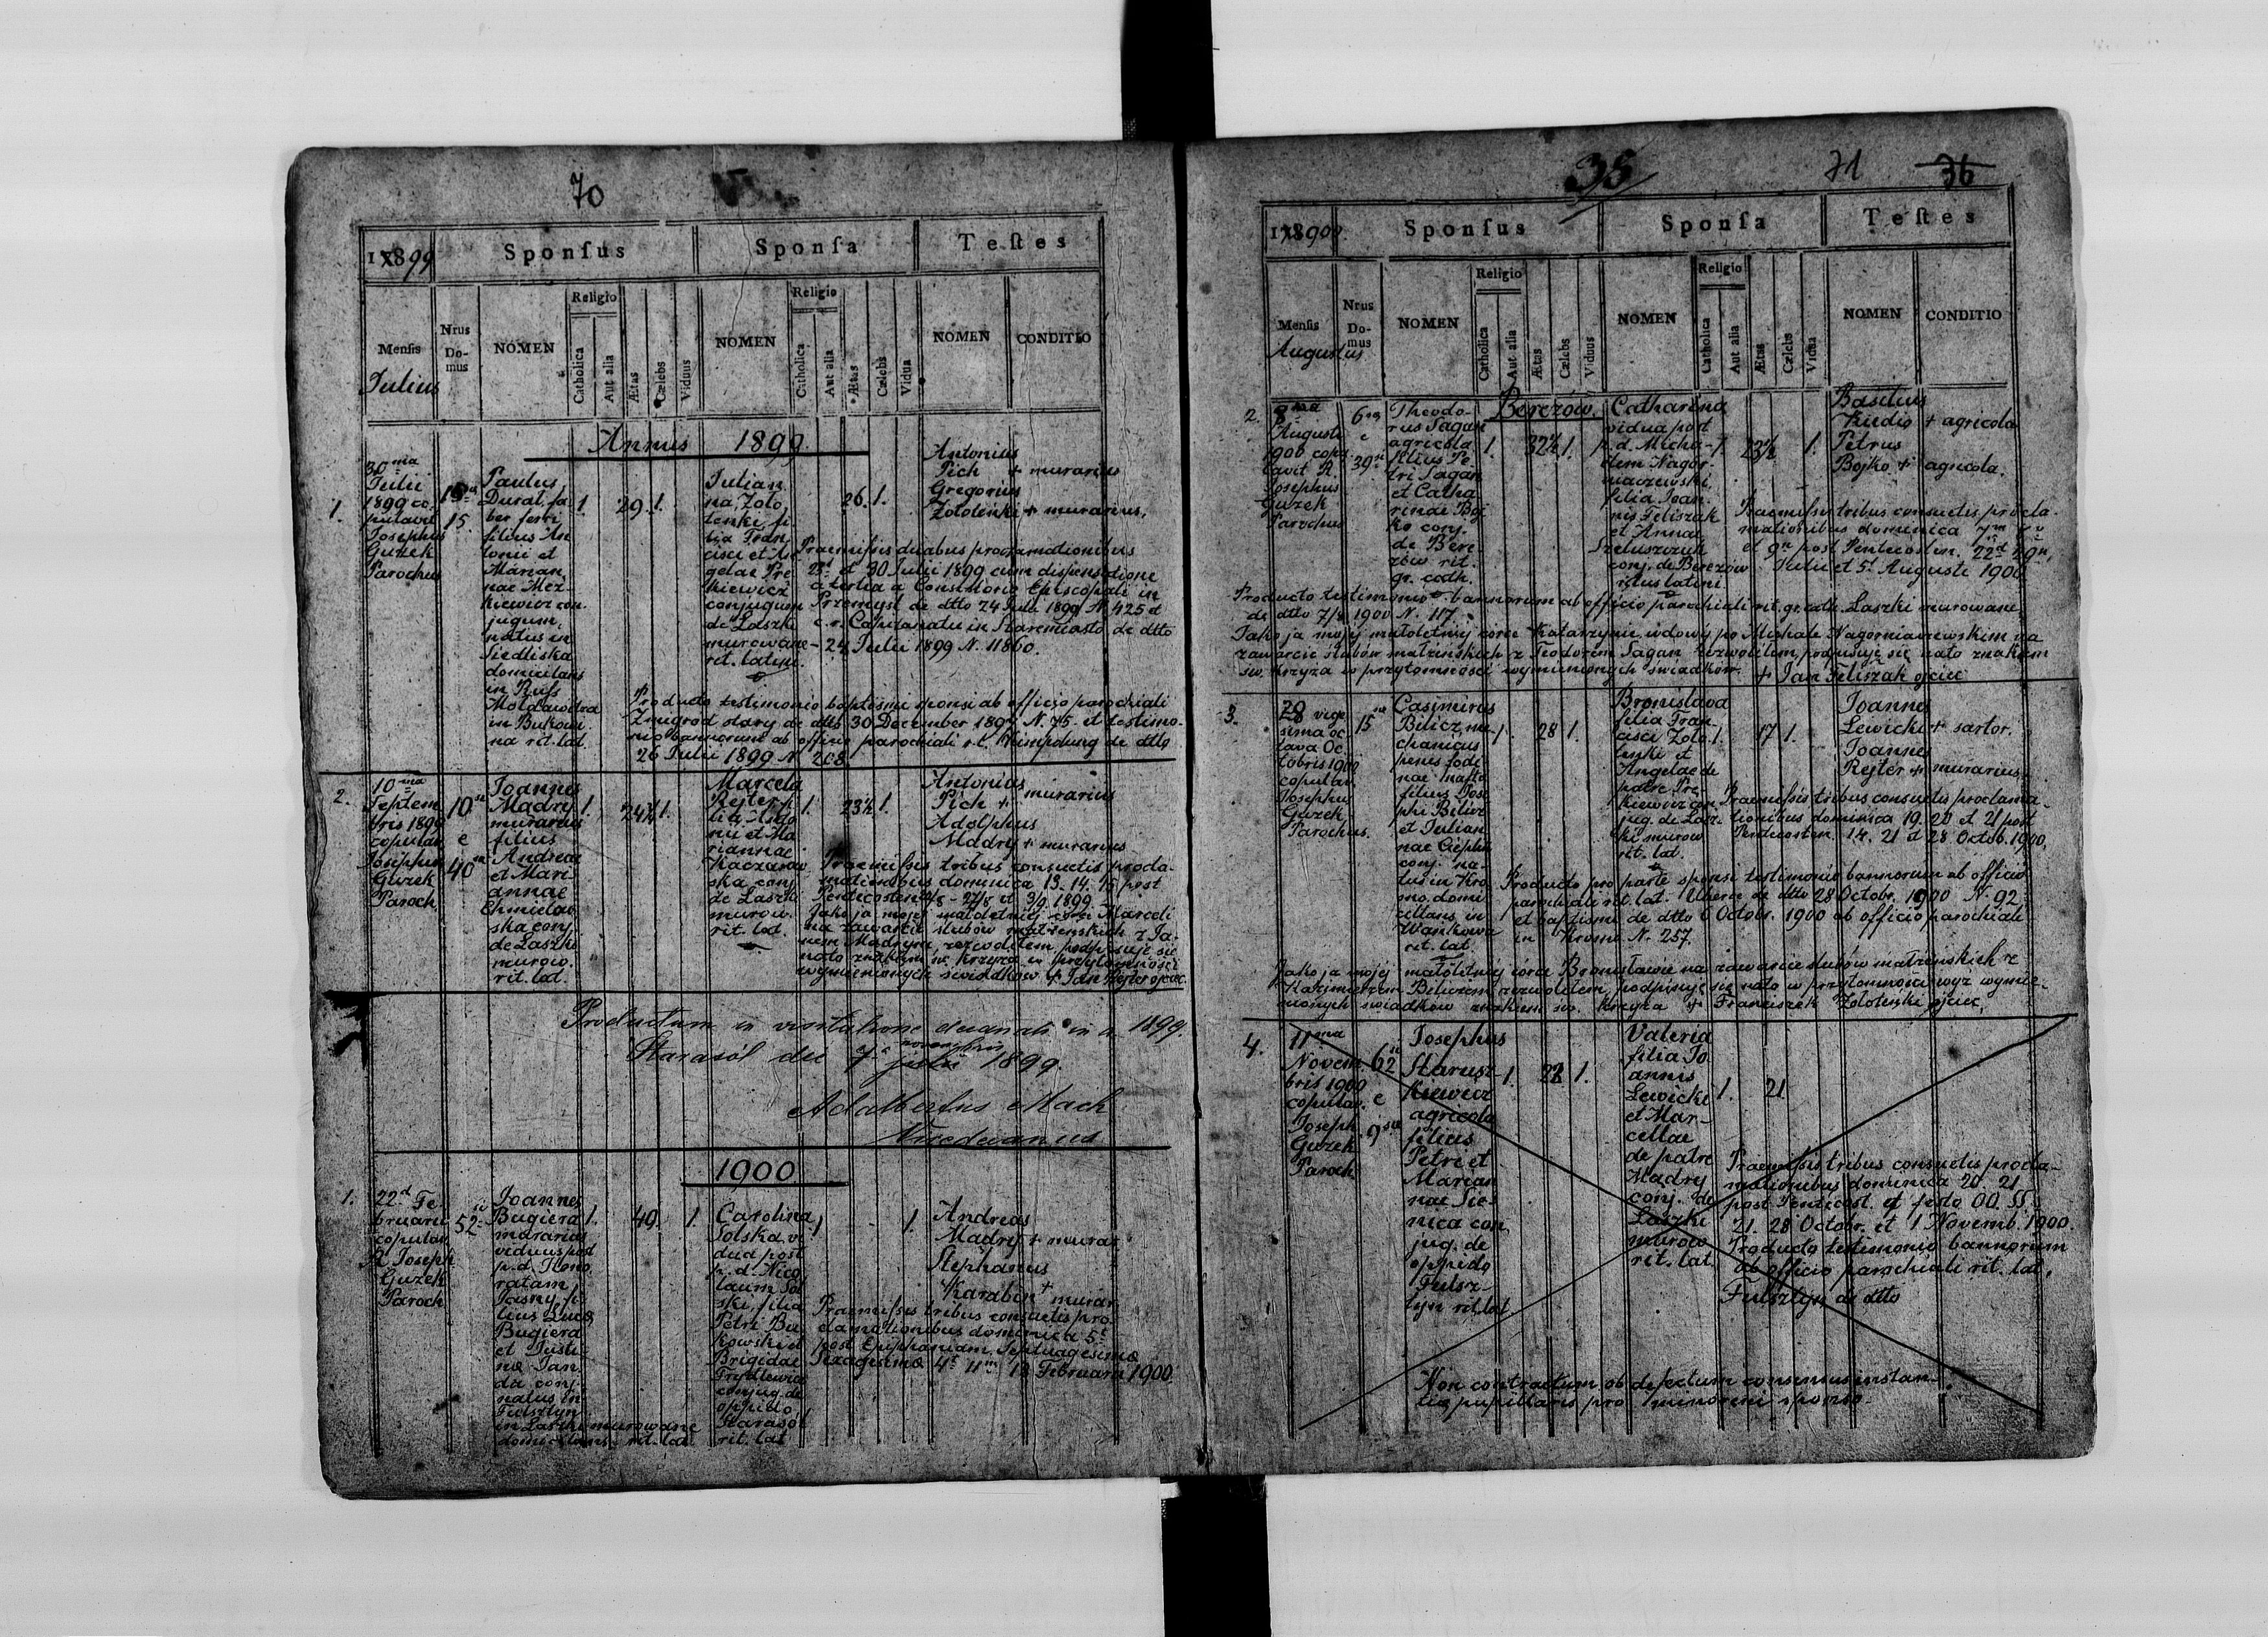 70
1899
Sponsus
Sponsa
Testes
Mensis
Julius
Nrus Domus
NOMEN
Religio
Catholica
Aut alia
Ætas
Cælebs
Viduus
NOMEN
Religio
Catholica
Aut alia
Ætas
Cælebs
Vidua
NOMEN
CONDITIO
Annus 1899
1.
30 ma
Julii
1899 co-
pulavit
Josephus
Guzek
Parochus
15.
Paulus
Durał fa-
ber ferri
filius An
tonii et
Marian
nae Mez-
kiewicz con-
jugum,
natus in
Siedliska
domicilans
in Russ
Moldawitza
in Bukowi
na rit. lat.
1.
29.
1.
Julian
na Zoło
tenki, fi-
lia Fran
cisci et An
gelae Pre
kiewicz
conjugum
de Laszki
murowane
rit. latini.
26.
1.
Antonius
Pich + murarius
Gregorius
Zołotenki + murarius.
Praemissis duabus proclamationibus
23a et 30 Julii 1899 cum dispensatione
a tertia a Consistorio Episcopali in
Przemyśl de dtto 24 Julii 1899 N. 425 et
c. r. Capitanatu in Staremiasto de dtto
24 Julii 1899 N. 11860.
Producto testimonio baptismi sponsi ab officio parochiali
Zmigrod stary de dtto 30 December 1897 N. 75 et testimo-
nio bannorum ab officio parochiali r. l. Kimpolung de dtto
26 Julii 1899 N. 208.
2.
10 ma
Septem
bris 1899
copulav.
Josephus
Guzek
Paroch.
10
e
40
Joannes
Madry
murarius
filius
Andreae
et Mari
annae
Chmielow
ska conj.
de Laszki
murow.
rit. lat.
1.
24½
1.
Marcela
Rejter, fi-
lia Anto
nii et Ma
riannae
Kaczorow
ska conj.
de Laszki
murow.
rit. lat.
1.
23½
1.
Antonius
Pich + murarius
Adolphus
Madry + murarius
Praemissis tribus consuetis procla-
mationibus dominica 13. 14. 15 post
Pentecosten - 27/8 et 3/9 1899.
Jako ja mojej małoletniej córce Marceli
na zawarcie ślubów małżeńskich z Ja-
nem Madrym zezwoliłem podpisuję się
nato znakiem św. krzyża w przytomności
wymienionych świadków + Jan Rejter ojciec
Productum in visitatione decanali in a. 1899.
Starasól die 7 a novembris 1899.
Adalbertus Mach
Vicedecanus
1900
1.
22 d Fe-
bruarii
copulav.
R. Joseph
Guzek
Paroch
52
Joannes
Bugiera
murarius
viduus post
p. d. Hono
ratam
Jasny, fi-
lius Lucae
Bugiera
et Justi
nae Jan
da conj.
natus in
Fulsztyn
in Laszki murowane
domicilans rit. lat.
1.
49.
1.
Carolina
Polska vi
dua post
p. d. Nico
laum Pol
ski, filia
Petri Bu
kowski et
Brigidae
Frydlewicz
conjug. de
oppido
Starasól
rit. lat.
1
1.
Andreas
Madry + murar.
Stephanus
Karabin + murar.
Praemissis tribus consuetis pro-
clamationibus dominica 5a
post Epiphaniam, Septuagesima
Sexagesima 4a 11ma 18 Februarii 1900.
35
71
36
1900.
Sponsus
Sponsa
Testes
Mensis
Augustus
Nrus Domus
NOMEN
Religio
Catholica
Aut alia
Ætas
Cælebs
Viduus
NOMEN
Religio
Catholica
Aut alia
Ætas
Cælebs
Vidua
NOMEN
CONDITIO
Berezow.
2.
Augusti
1900 copu-
lavit R.
Josephus
Guzek
Parochus
6
e
39
Theodo-
rus Sagan
agricola
filius Pe-
tri Sagan
et Catha
rinae Boj
ko conj.
de Bere
zów rit.
gr. cath.
1.
32½
1.
Catharina
vidua post
p. d. Micha-
elem Nagór-
niaczewski,
filia Joan-
nis Feliszak
et Annae
Szeluszczuk
conj. de Berezów
ritus latini
1.
23½
1.
Basilius
Kiedio + agricola
Petrus
Bojko + agricola.
Praemissis tribus consuetis procla-
mationibus dominica 7 ma 8 va
et 9 na post Pentecosten. 22 d 29 na
Julii et 5 a Augusti 1900.
Producto testimonio bannorum ab officio parochiali rit. gr. cath. Laszki murowane
de dtto 7/8 1900 N. 117.
Jako ja mojej małoletniej córce Katarzynie wdowy po Michale Nagórniaczewskim na
zawarcie ślubów małżeńskich z Teodorem Sagan zezwoliłem, podpisuję się nato znakiem
św. krzyża w przytomności wymienionych świadków. + Jan Feliszak ojciec
3.
28 vige
sima oc
tava Oc
tobris 1900
copulav.
Josephus
Guzek
Parochus.
15
Casimirus
Bilicz, me-
chanicus
penes fodi
nae nafte
filius Jose
phi Bilicz
et Julian
nae Cieplik
conj. na-
tus in Kro
sno, domi
cilans in
Wańkowa
rit. lat.
1.
28
1.
Bronislava
filia Fran
cisci Zoło-
tenki et
Angelae de
patre Pre
kiewicz con
jug. de Lasz-
ki murow.
rit. lat.
1.
17
1.
Joannes
Lewicki + sartor.
Joannes
Rejter + murarius.
Praemissis tribus consuetis proclama-
tionibus dominica 19. 20 et 21 post
Pentecosten. 14. 21 et 28 Octob. 1900.
Producto pro parte sponsi testimonio bannorum ab officio
parochiali rit. lat. Uherce de dtto 28 Octobr. 1900 N. 92.
et baptismi de dtto 6 Octobr. 1900 ab officio parochiali
in Krosno N. 257.
Jako ja mojej małoletniej córce Bronisławie na zawarcie ślubów małżeńskich z
Kazimierzem Biliczem zezwoliłem, podpisuję się nato w przytomności wyż wymie-
nionych świadków znakiem św. krzyża + Franciszek Zołotenki ojciec.
4.
11 ma
Novem-
bris 1900
copulav.
Joseph
Guzek
Paroch
62
e
9
Josephus
Starusz-
kiewicz
agricola
filius
Petri et
Marian
nae Sie-
nica con
jug. de
oppido
Fulsz-
tyn rit. lat.
1.
28
1.
Valeria
filia Jo
annis
Lewicki
et Mar-
cellae
de patre
Madry
conj. de
Laszki
murow.
rit. lat.
1.
21
Praemissis tribus consuetis procla-
mationibus dominica 20. 21
post Pentecost. et festo OO. SS.
21. 28 Octobr. et 1 Novemb. 1900.
Producto testimonio bannorum
ab officio parochiali rit. lat.
Fulsztyn de dtto
Non contractum ob defectum consensus instan-
tiae pupillaris pro minoreni sponso.